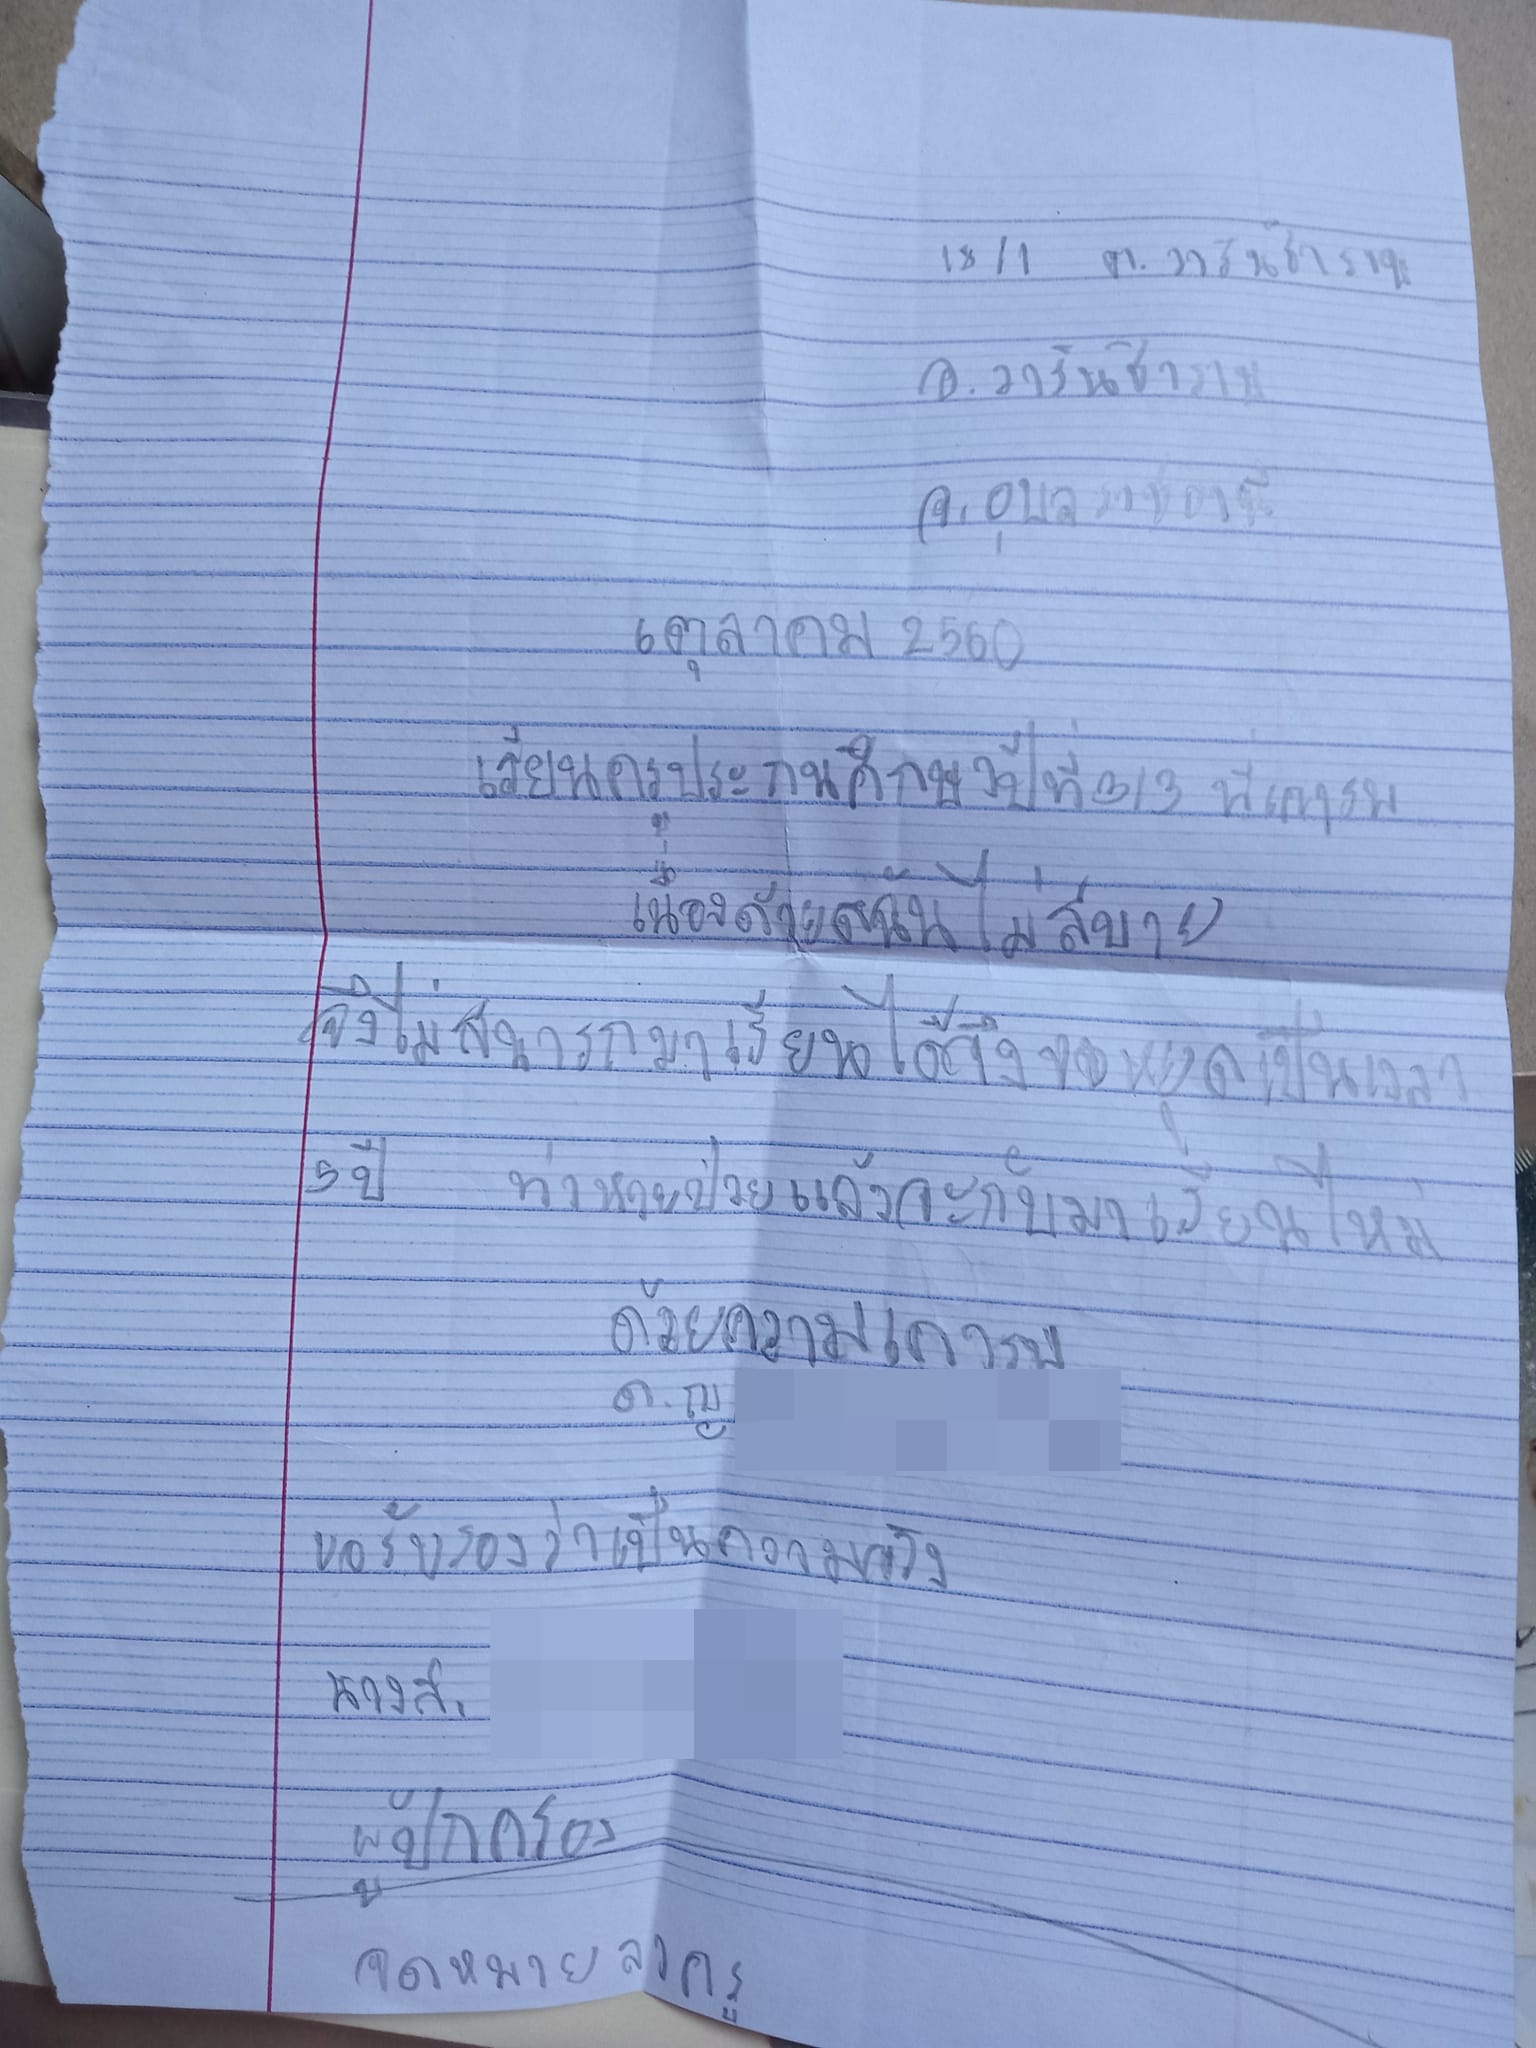 18/1 ต.วารินชำราบ
อ.วารินชำราบ
จ.อุบลราชธานี
6 ตุลาคม 2560
เรียนครูประถมศึกษาปีที่ 3/3 ที่เคารพ
เนื่องด้วยดิฉันไม่สบาย
จึงไม่สามารถมาเรียนได้จึงขอหยุดเป็นเวลา
5 ปี ท่าหายป่วยแล้วจะกับมาเรียนไหม่
ด้วยความเคารพ
ด.ญ
ขอรับรองว่าเป็นความจริง
นางส.
ผู้ปกครอง
จดหมายลาครู